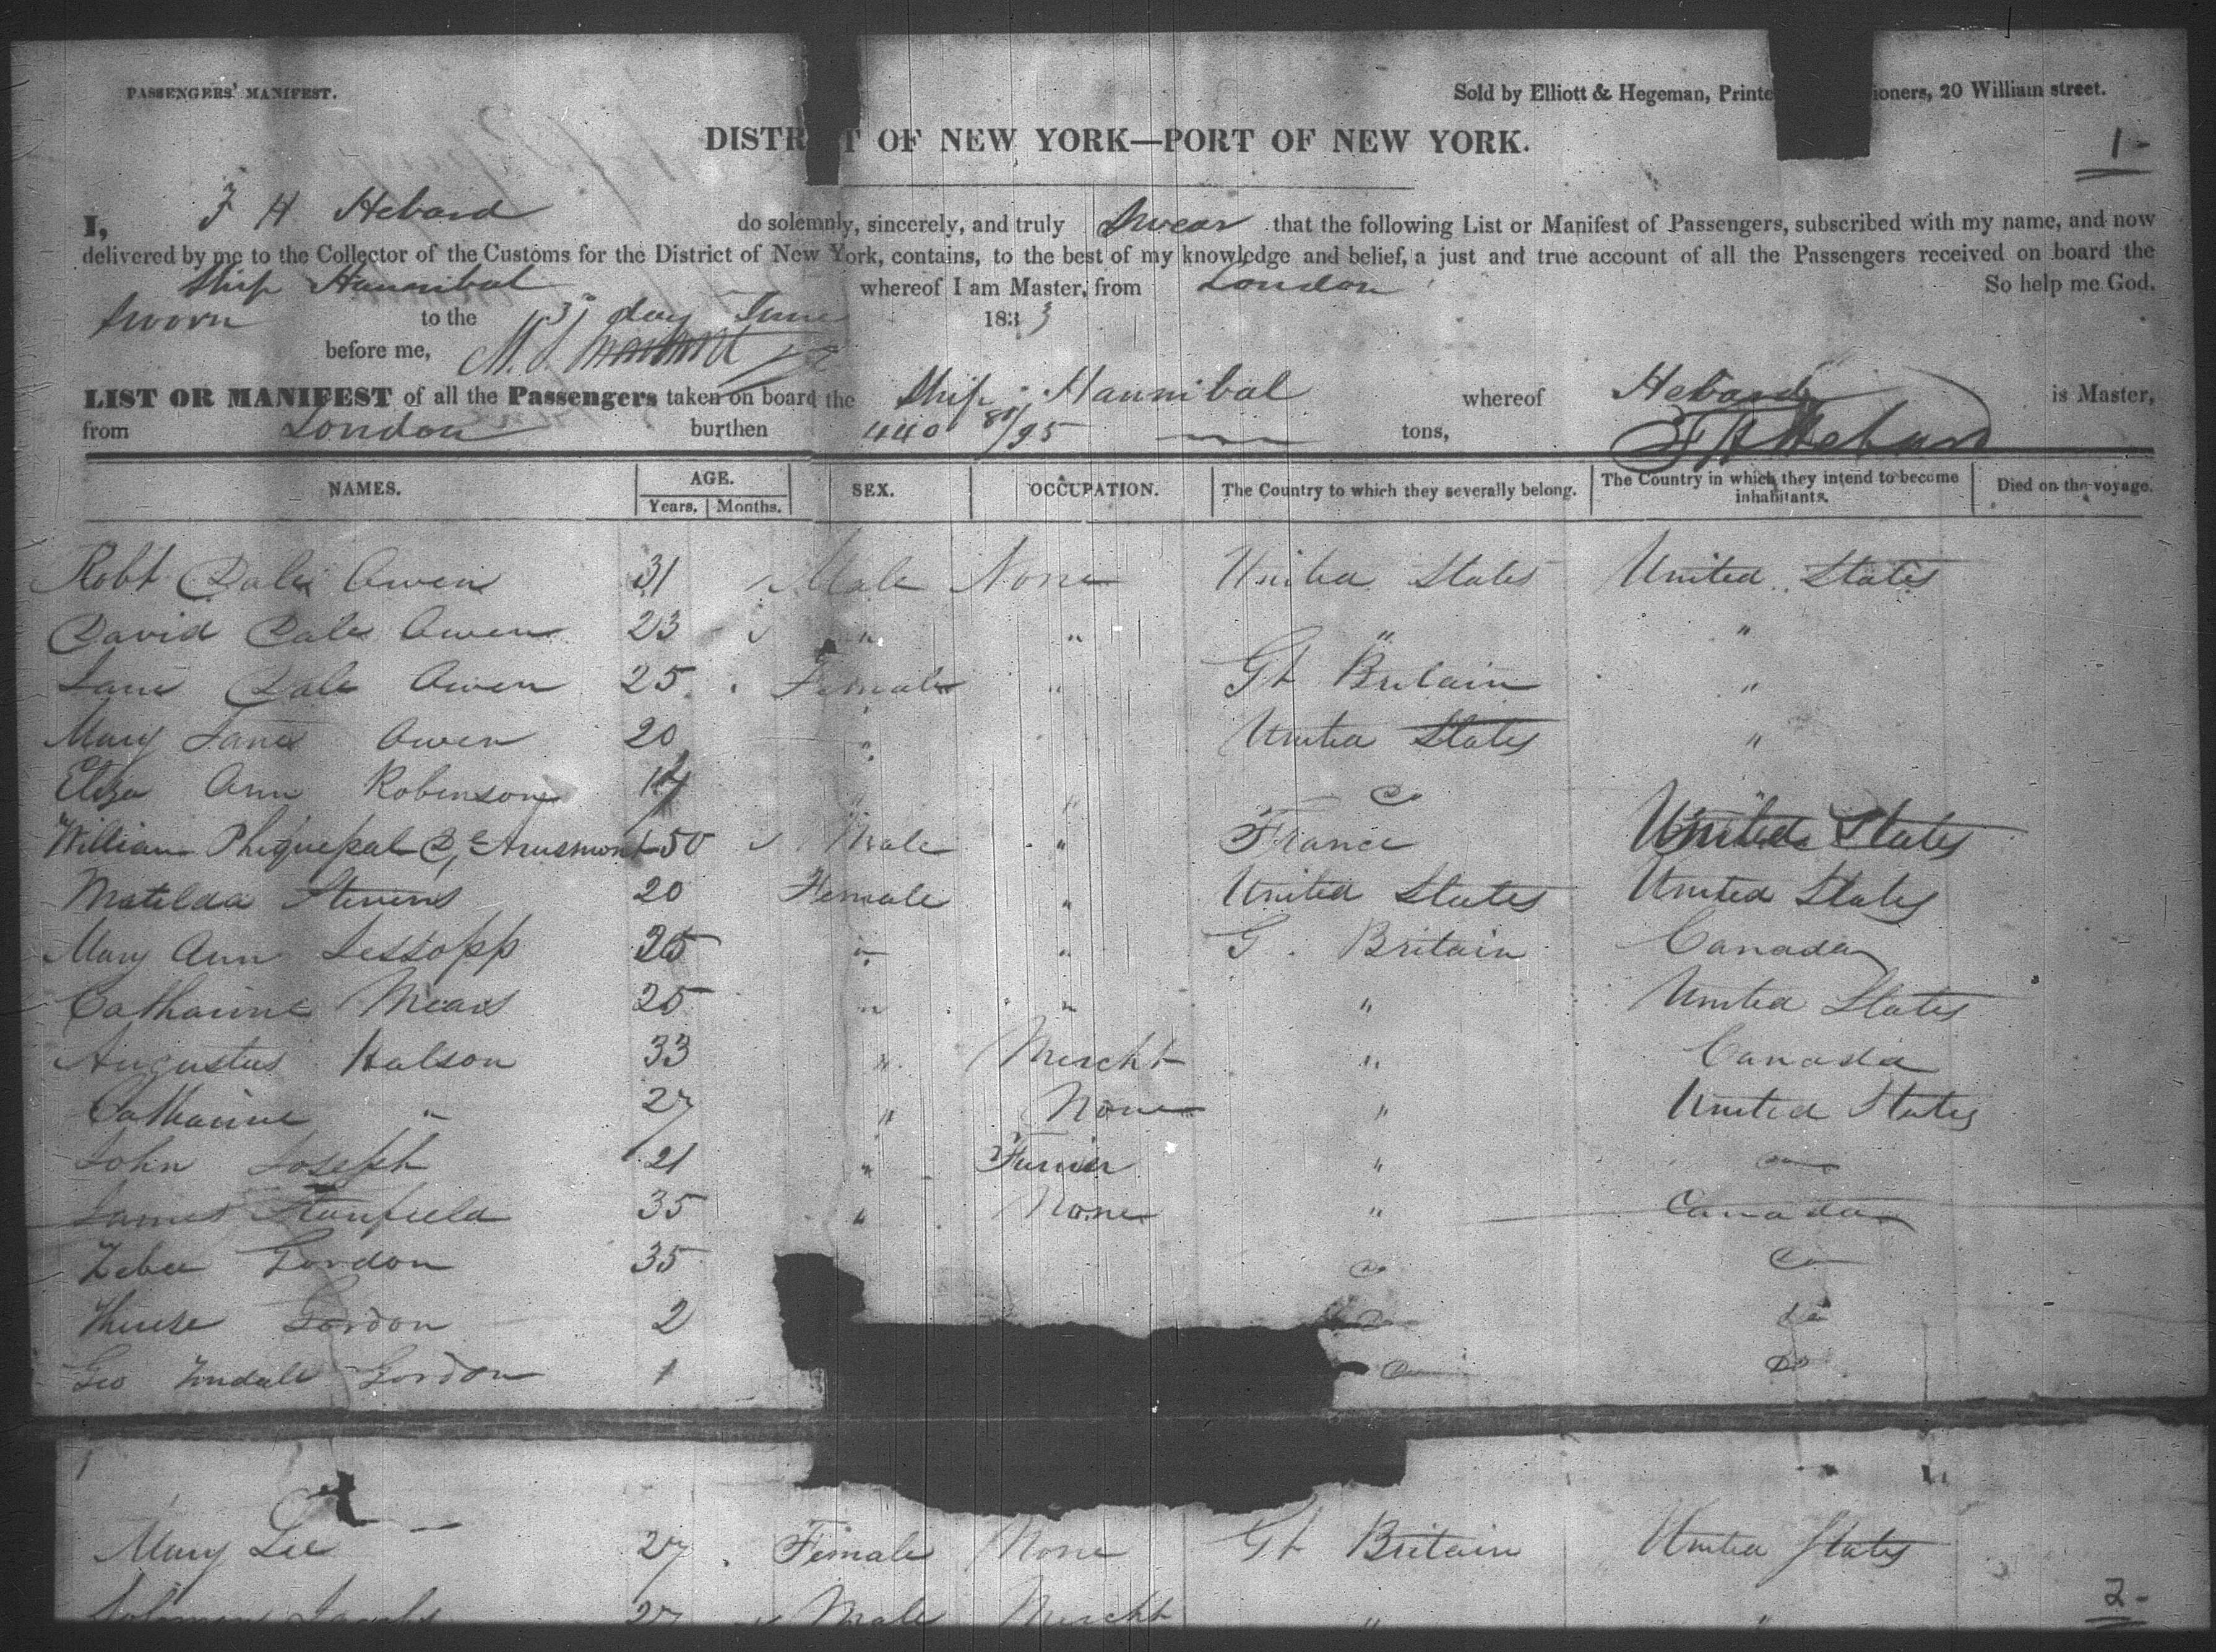 PASSENGERS' MANIFEST.
Sold by Elliott & Hegeman, Printe ioners, 20 William street.
DISTR T OF NEW YORK—PORT OF NEW YORK.
1-
I, F H Hebard do solemnly, sincerely, and truly Swear that the following List or Manifest of Passengers, subscribed with my name, and now
delivered by me to the Collector of the Customs for the District of New York, contains, to the best of my knowledge and belief, a just and true account of all the Passengers received on board the
Ship Hannibal whereof I am Master, from London So help me God.
Sworn to the day June 1833
before me,
LIST OR MANIFEST of all the Passengers taken on board the Ship Hannibal whereof Hebard is Master,
from London burthen 440 /95 tons, F H Hebard
NAMES. AGE. SEX. OCCUPATION. The Country to which they severally belong. The Country in which they intend to become inhabitants. Died on the voyage.
Years. Months.
Robt Dale Owen 31 Male None United States United States
David Dale Owen 23 " " " "
Jane Dale Owen 25 Female " Gt Britain "
Mary Jane Owen 20 " United States "
Eliza Ann Robinson " Do
William Phiquepal D'Arusmont 50 Male " France United States
Matilda Stevens 20 Female " United States United States
Mary Ann Jessopp 25 " " G. Britain Canada
Catharine Mears 25 " " " United States
Augustus Halson 33 " Mercht " Canada
Catharine " 27 " None " United States
John Joseph 21 " Furrier "
James Stanfield 35 " None " Canada
Gordon 35 Do Do
Gordon 2 Do Do
Geo Gordon 1 Do Do
Mary Lee 27 Female None Gt Britain United States
Solomon Jacobs 27 Male Mercht " "
2-